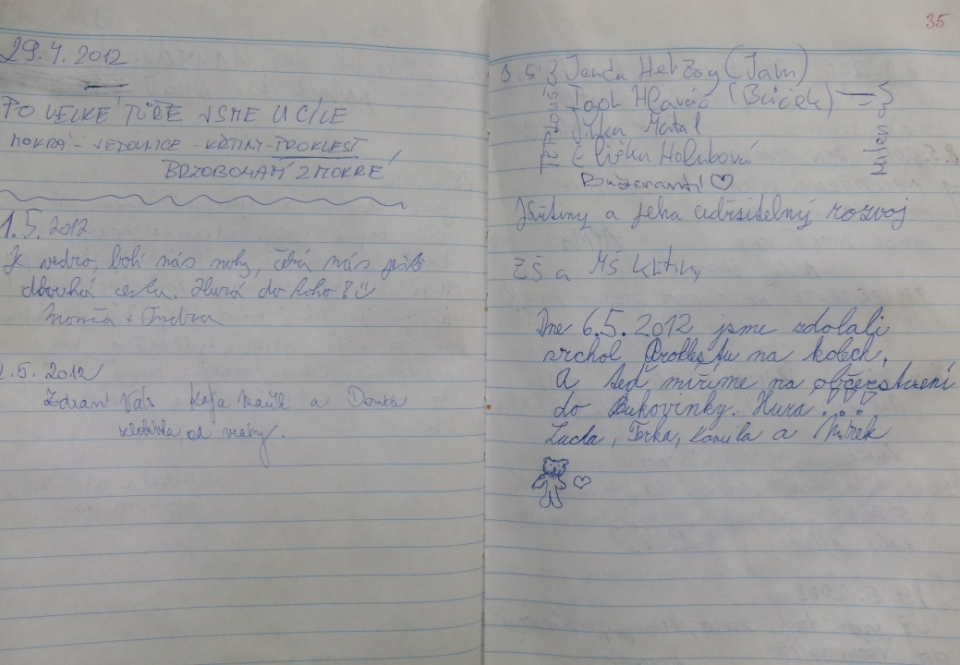 29.4.2012
PO VELKÉ TŮŘE JSME U CÍLE
MOKRÁ - JEDOVNICE - KŘTINY - PROKLEST
BRZOBOHATÍ Z MOKRÉ
1.5.2012
Je vedro, bolí nás nohy, čeká nás ještě
dlouhá cesta. Hurá do toho!
Monča + Ondra
2.5.2012
Zdraví Vás Kája Mařík a Domka
od
35
3 5 Jenda Herzog (Jam)
Igor Hlaváč (Bůček)
Jitka Matal
Eliška Holubová
Buzeranti ♡
Křtiny a jeho udržitelný rozvoj
ZŠ a MŠ Křtiny
Dne 6.5.2012 jsme zdolali
vrchol Proklestu na kolech.
A teď míříme na občerstvení
do Bukovinky. Hura...
Lucka, Terka, Kamila a Mirek
♡